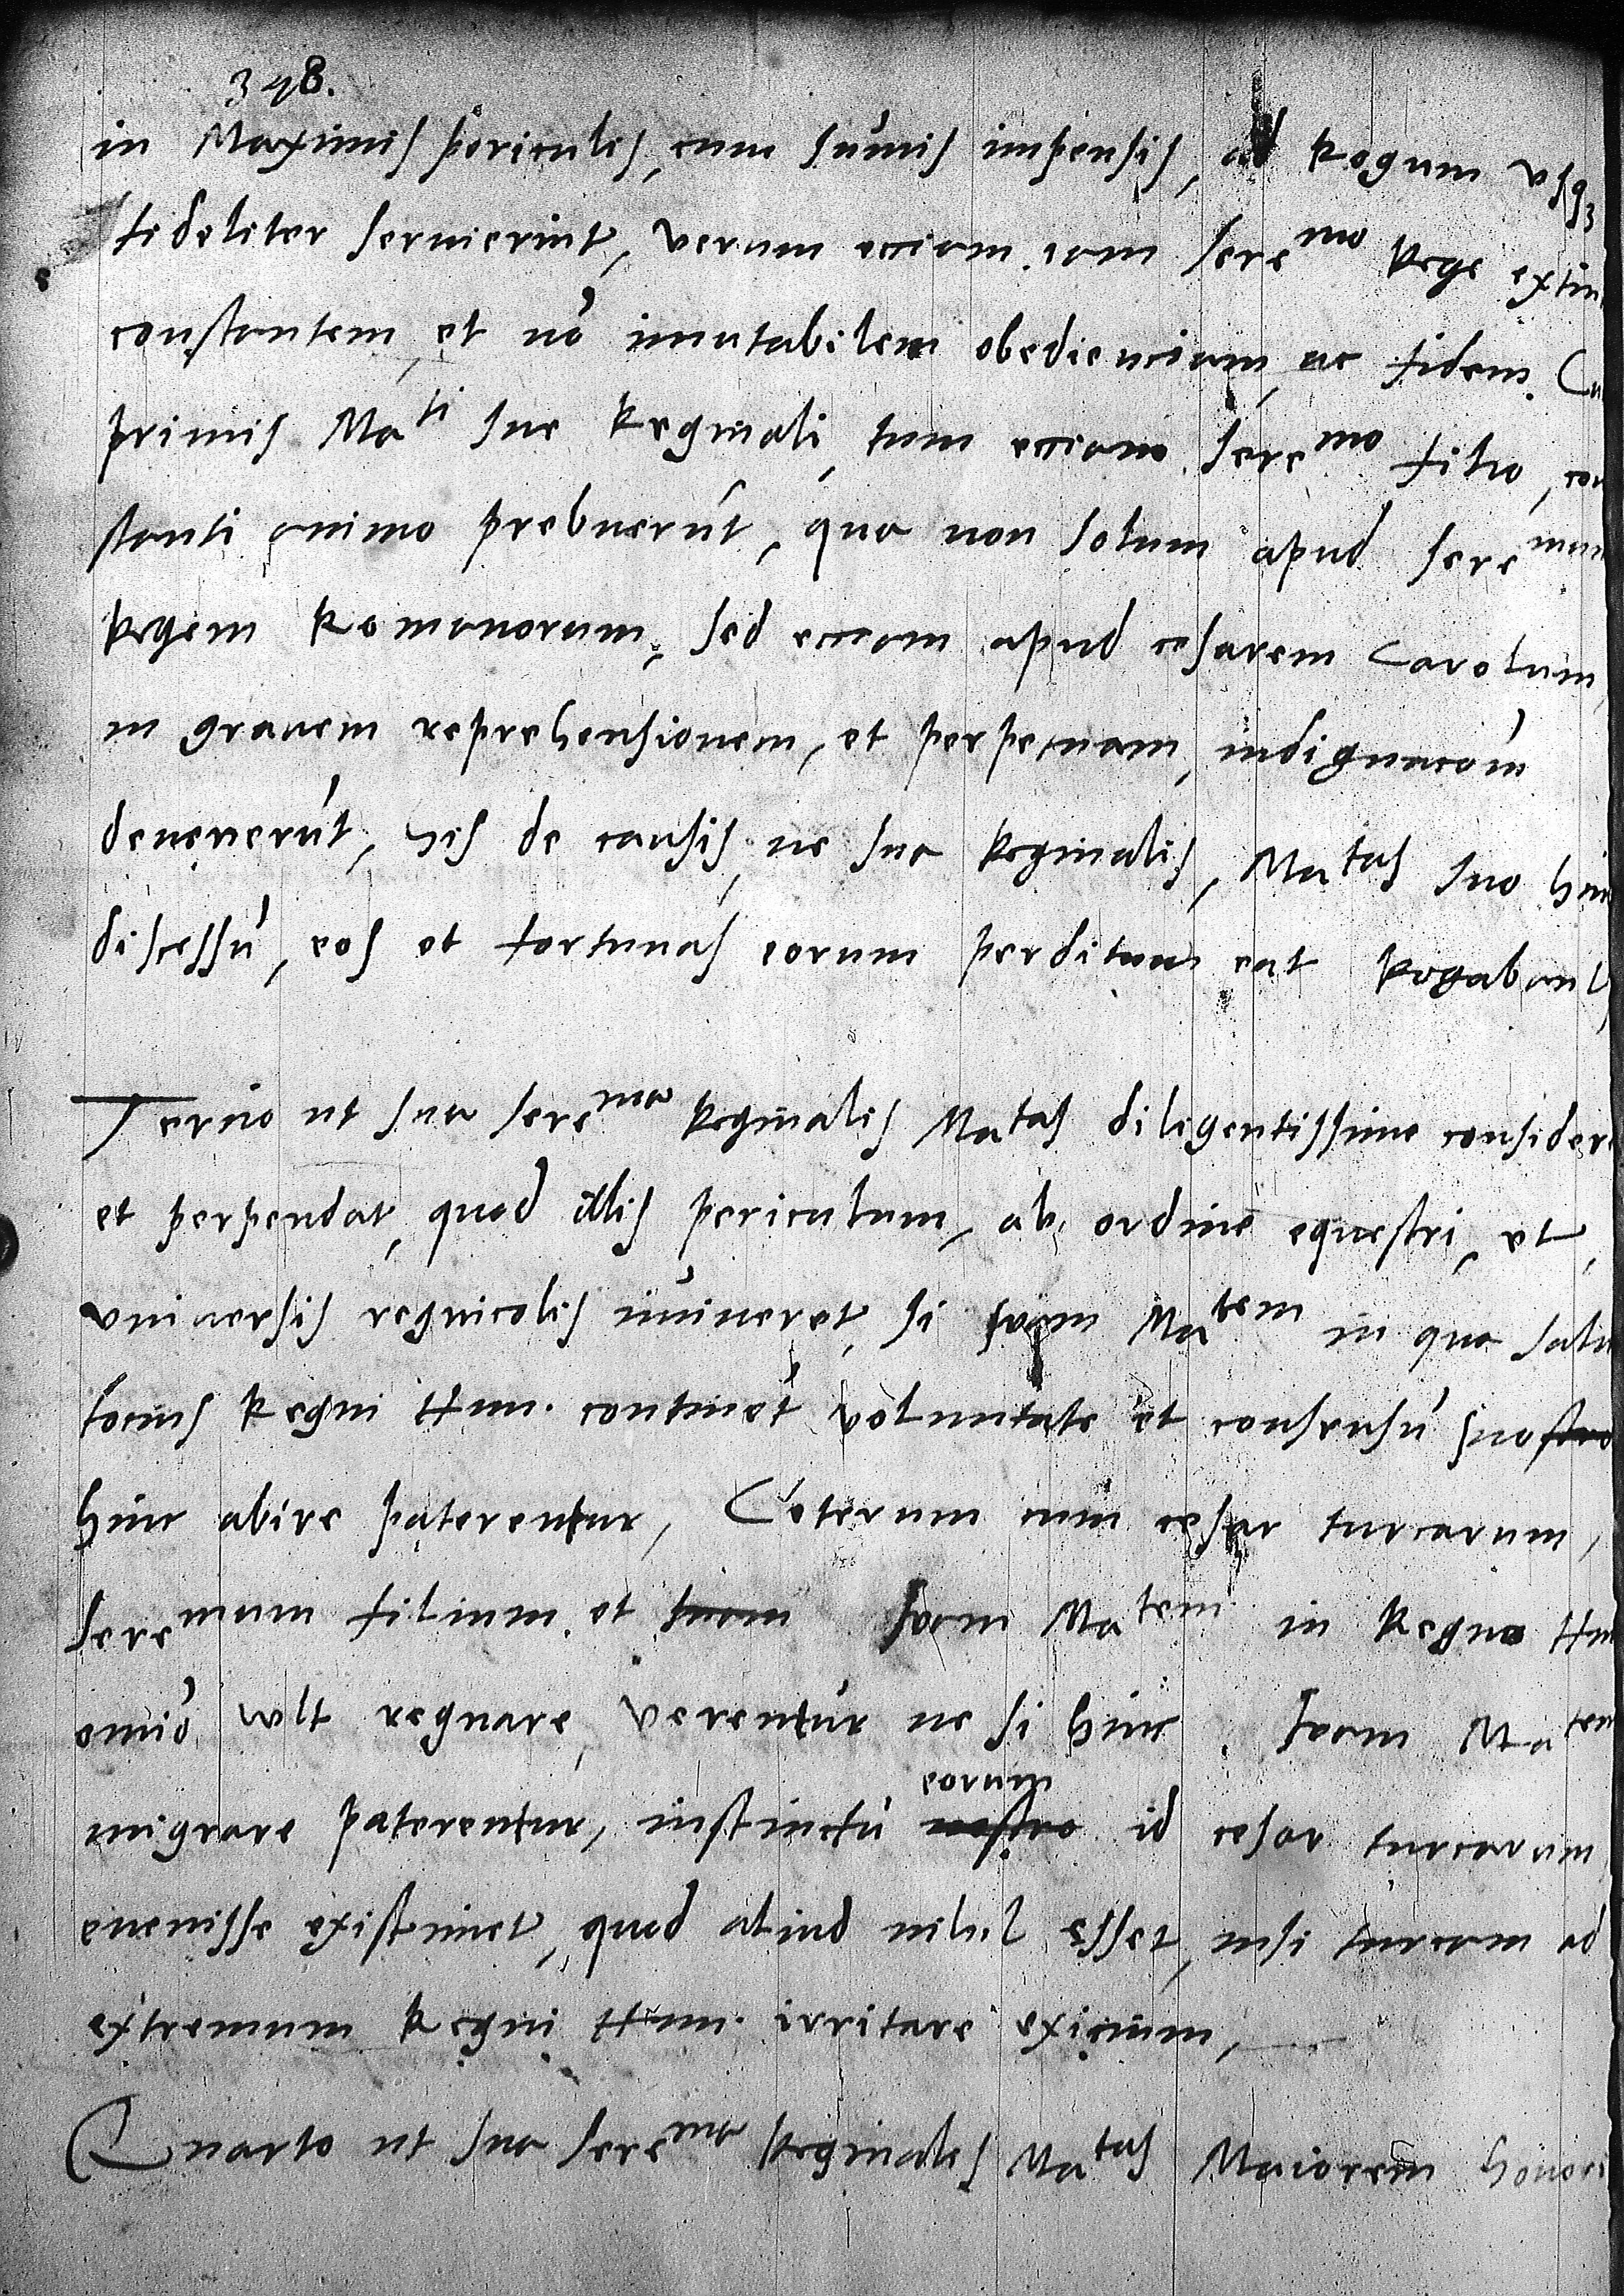 398.
in Maximis periculis, cum sumis impensis, ad Rogum usq3
fideliter servierint, verum eciam iam sere^mo Rege
constantem, et nō imutabilem obedienciam, ac fidem. Cu
primis Ma^ti sue Reginali, tum eciam sere^mo filio, con
stanti animo prebuerūt, qua non solum apud sere^mum
Regem Romanorum, sed eciam apud cesarem Carolum
in gravem reprehensionem, et perpetuam, indignacōm
devenerūt, his de causis, ne sua Reginalis, Ma^tas suo hinc
discessū, eos et fortunas eorum perditum eat Rogabant,
Tercio ut sua sere^ma Reginalis Ma^tas diligentissime
et perpendat, quod illis periculum, ab ordine equestri, et
universis regnicolis īmineret, si suam Ma^tem in qua
tocius Regni Hun. continet voluntate et consensū suo
hinc abire paterentur, Ceterum cum cesar turcarum,
sere^mum filium. et suam Ma^tem in Regno
omīo vult regnare, verentūr ne si hinc suam Ma^tem
migrare paterentur, instinctū eorum id cesar turcarum
evenisse existimet, quod aliud nihil esset, nisi turcam ad
extremum Regni Hun. irritare exicium,
Quarto ut sua sere^ma Reginalis Ma^tas Maiorem